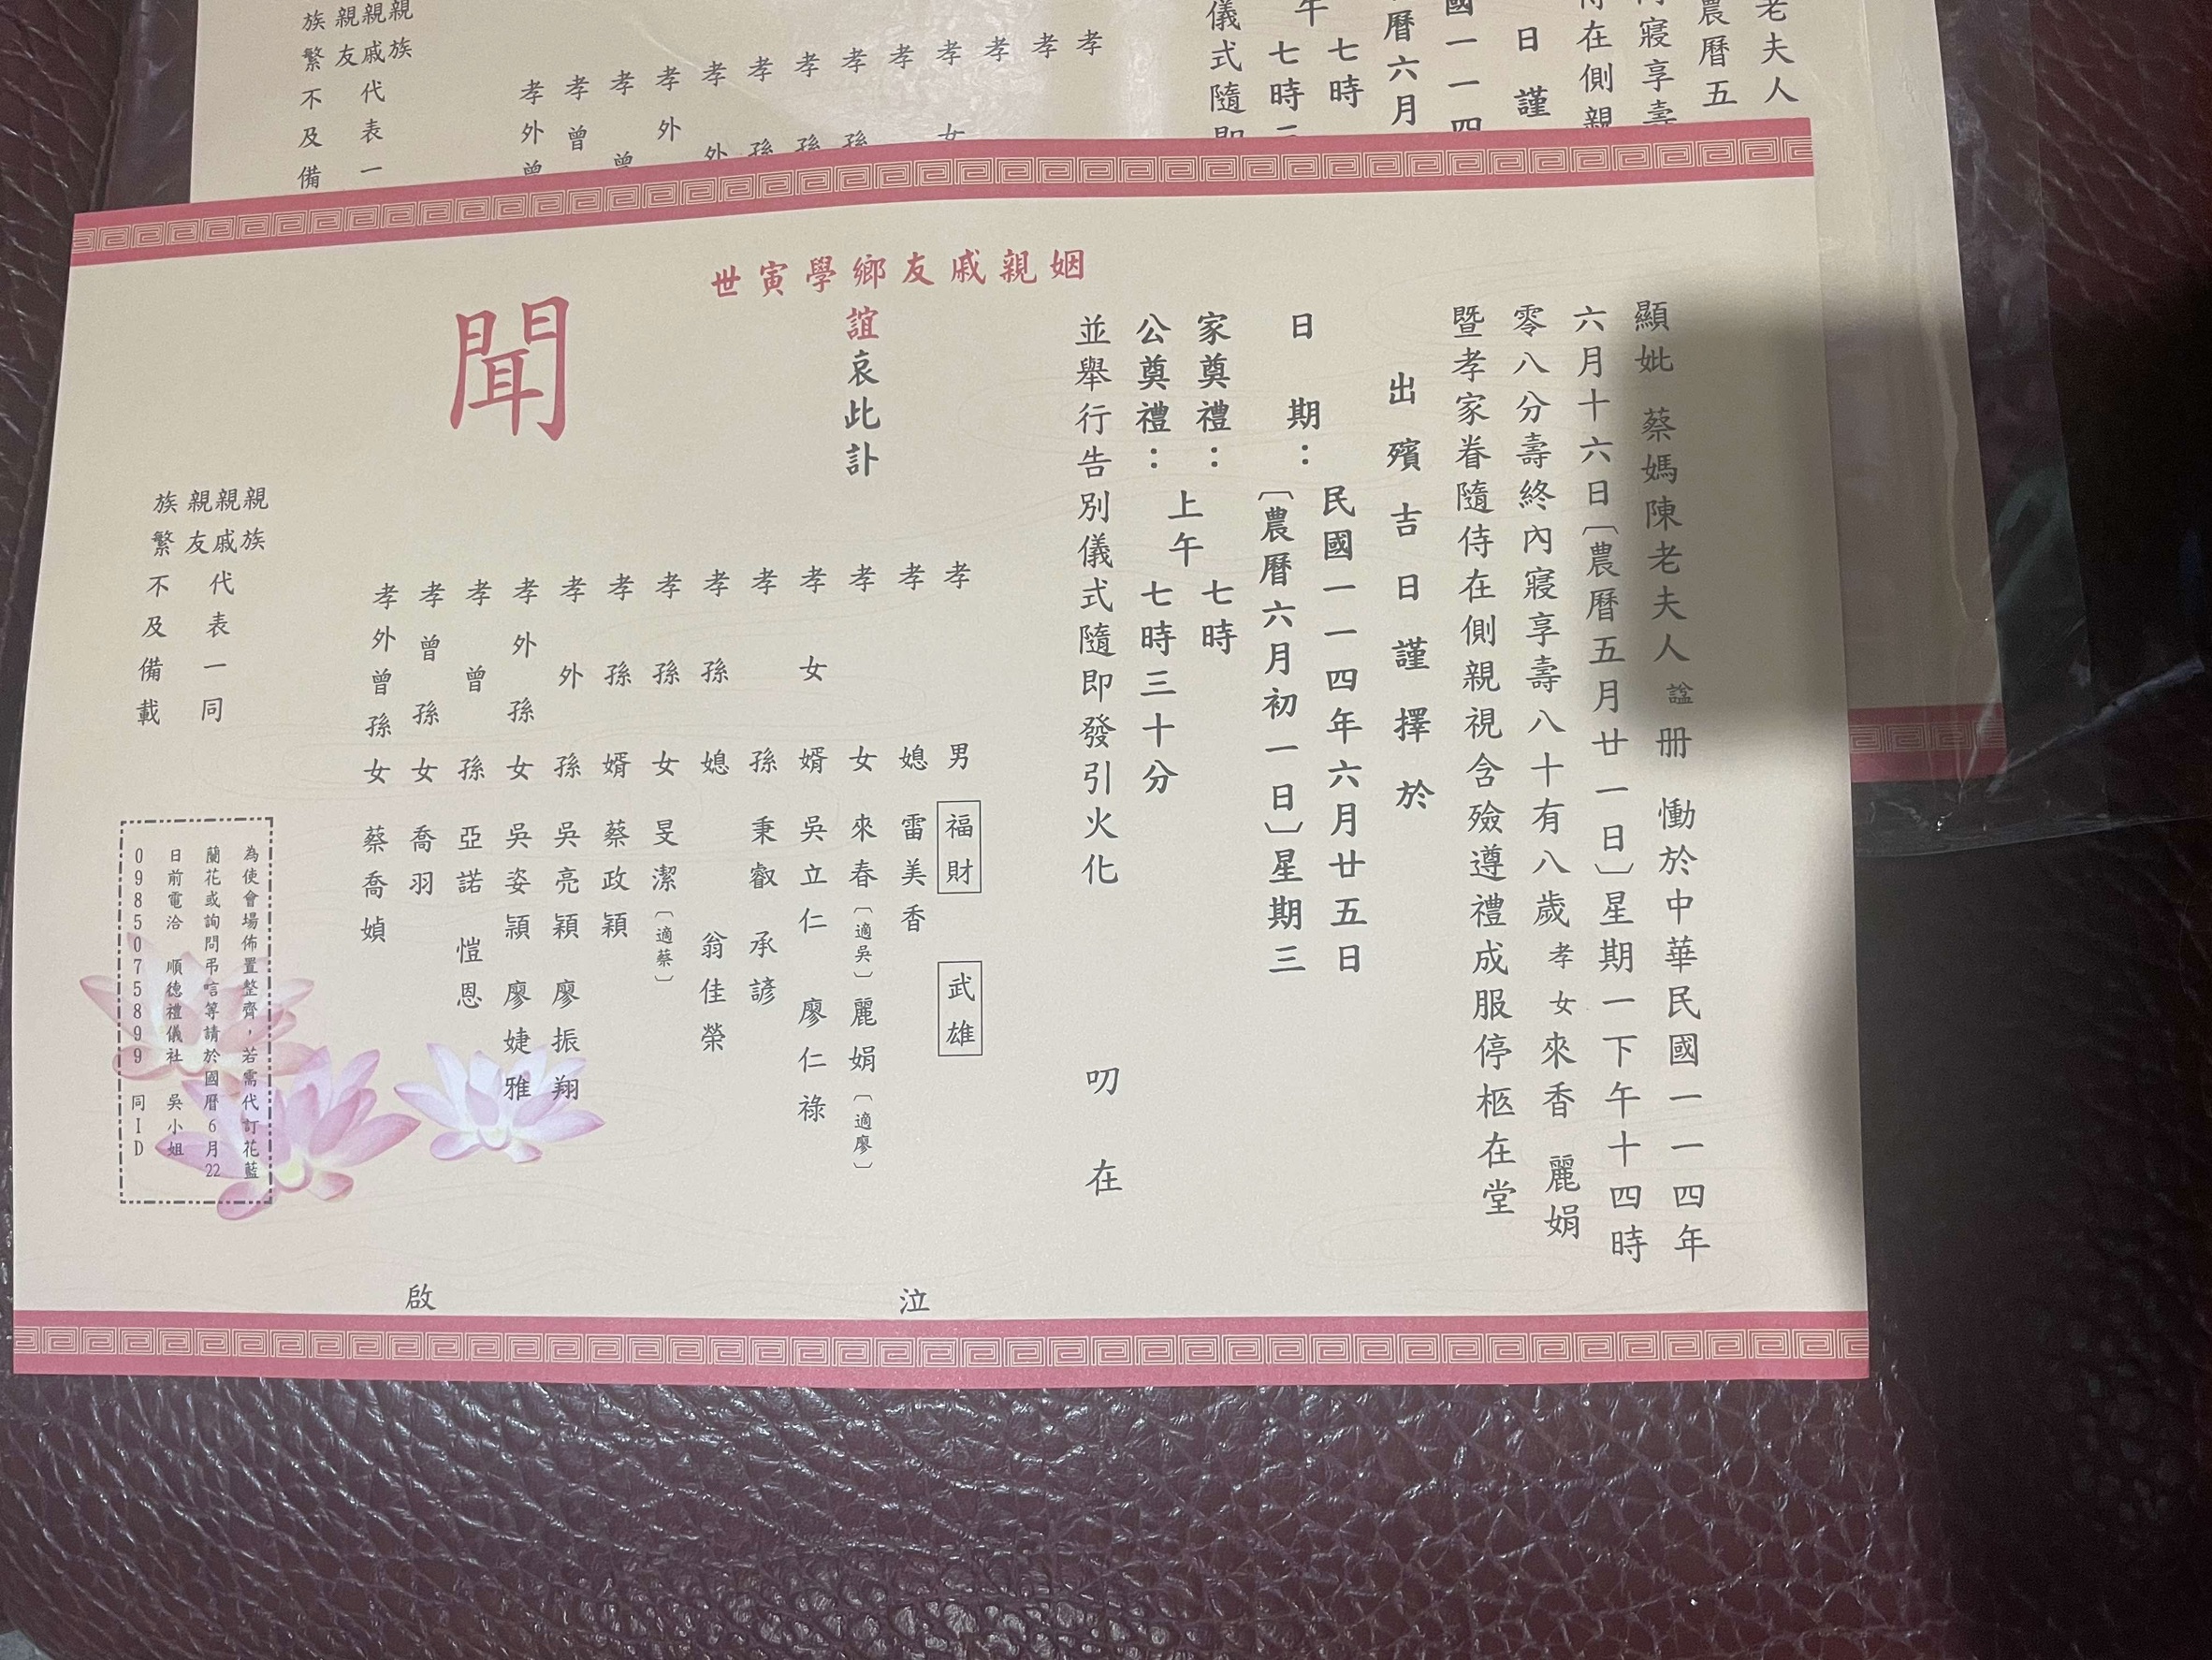 老夫人
農曆五
寢享壽
在側親
日謹
國一一四
曆六月
午 七時
七時
儀式隨
孝
孝
孝
孝女
孝
孝孫
孝孫
孝孫
孝外
孝外
孝曾
孝曾
孝外曾
親族
親戚代表一
親友
族繁不及備
顯妣 蔡媽陳老夫人 諡冊 慟於中華民國一一四年
六月十六日〔農曆五月廿一日〕星期一下午十四時
零八分壽終內寢享壽八十有八歲 孝女 來香 麗娟
暨孝家眷隨侍在側親視含殮遵禮成服停柩在堂
出殯吉日謹擇於
日期：民國一一四年六月廿五日
〔農曆六月初一日〕星期三
家奠禮：上午 七時
公奠禮：七時三十分
並舉行告別儀式隨即發引火化
叨在
姻親戚友鄉學寅世
誼哀此訃
聞
孝男 福財 武雄
孝媳 雷美香
孝女 來春〔適吳〕 麗娟〔適廖〕
孝女婿 吳立仁 廖仁祿
孝孫 秉叡 承諺
孝孫媳 翁佳榮
孝孫女 旻潔〔適蔡〕
孝孫婿 蔡政穎
孝外孫 吳亮穎 廖振翔
孝外孫女 吳姿頴 廖婕雅
孝曾孫 亞諾 愷恩
孝曾孫女 喬羽
孝外曾孫女 蔡喬媜
泣
啟
親族
親戚代表一同
親友
族繁不及備載
為使會場佈置整齊，若需代訂花籃
蘭花或詢問弔唁等請於國曆6月22
日前電洽 順德禮儀社 吳小姐
0985075899 同ID